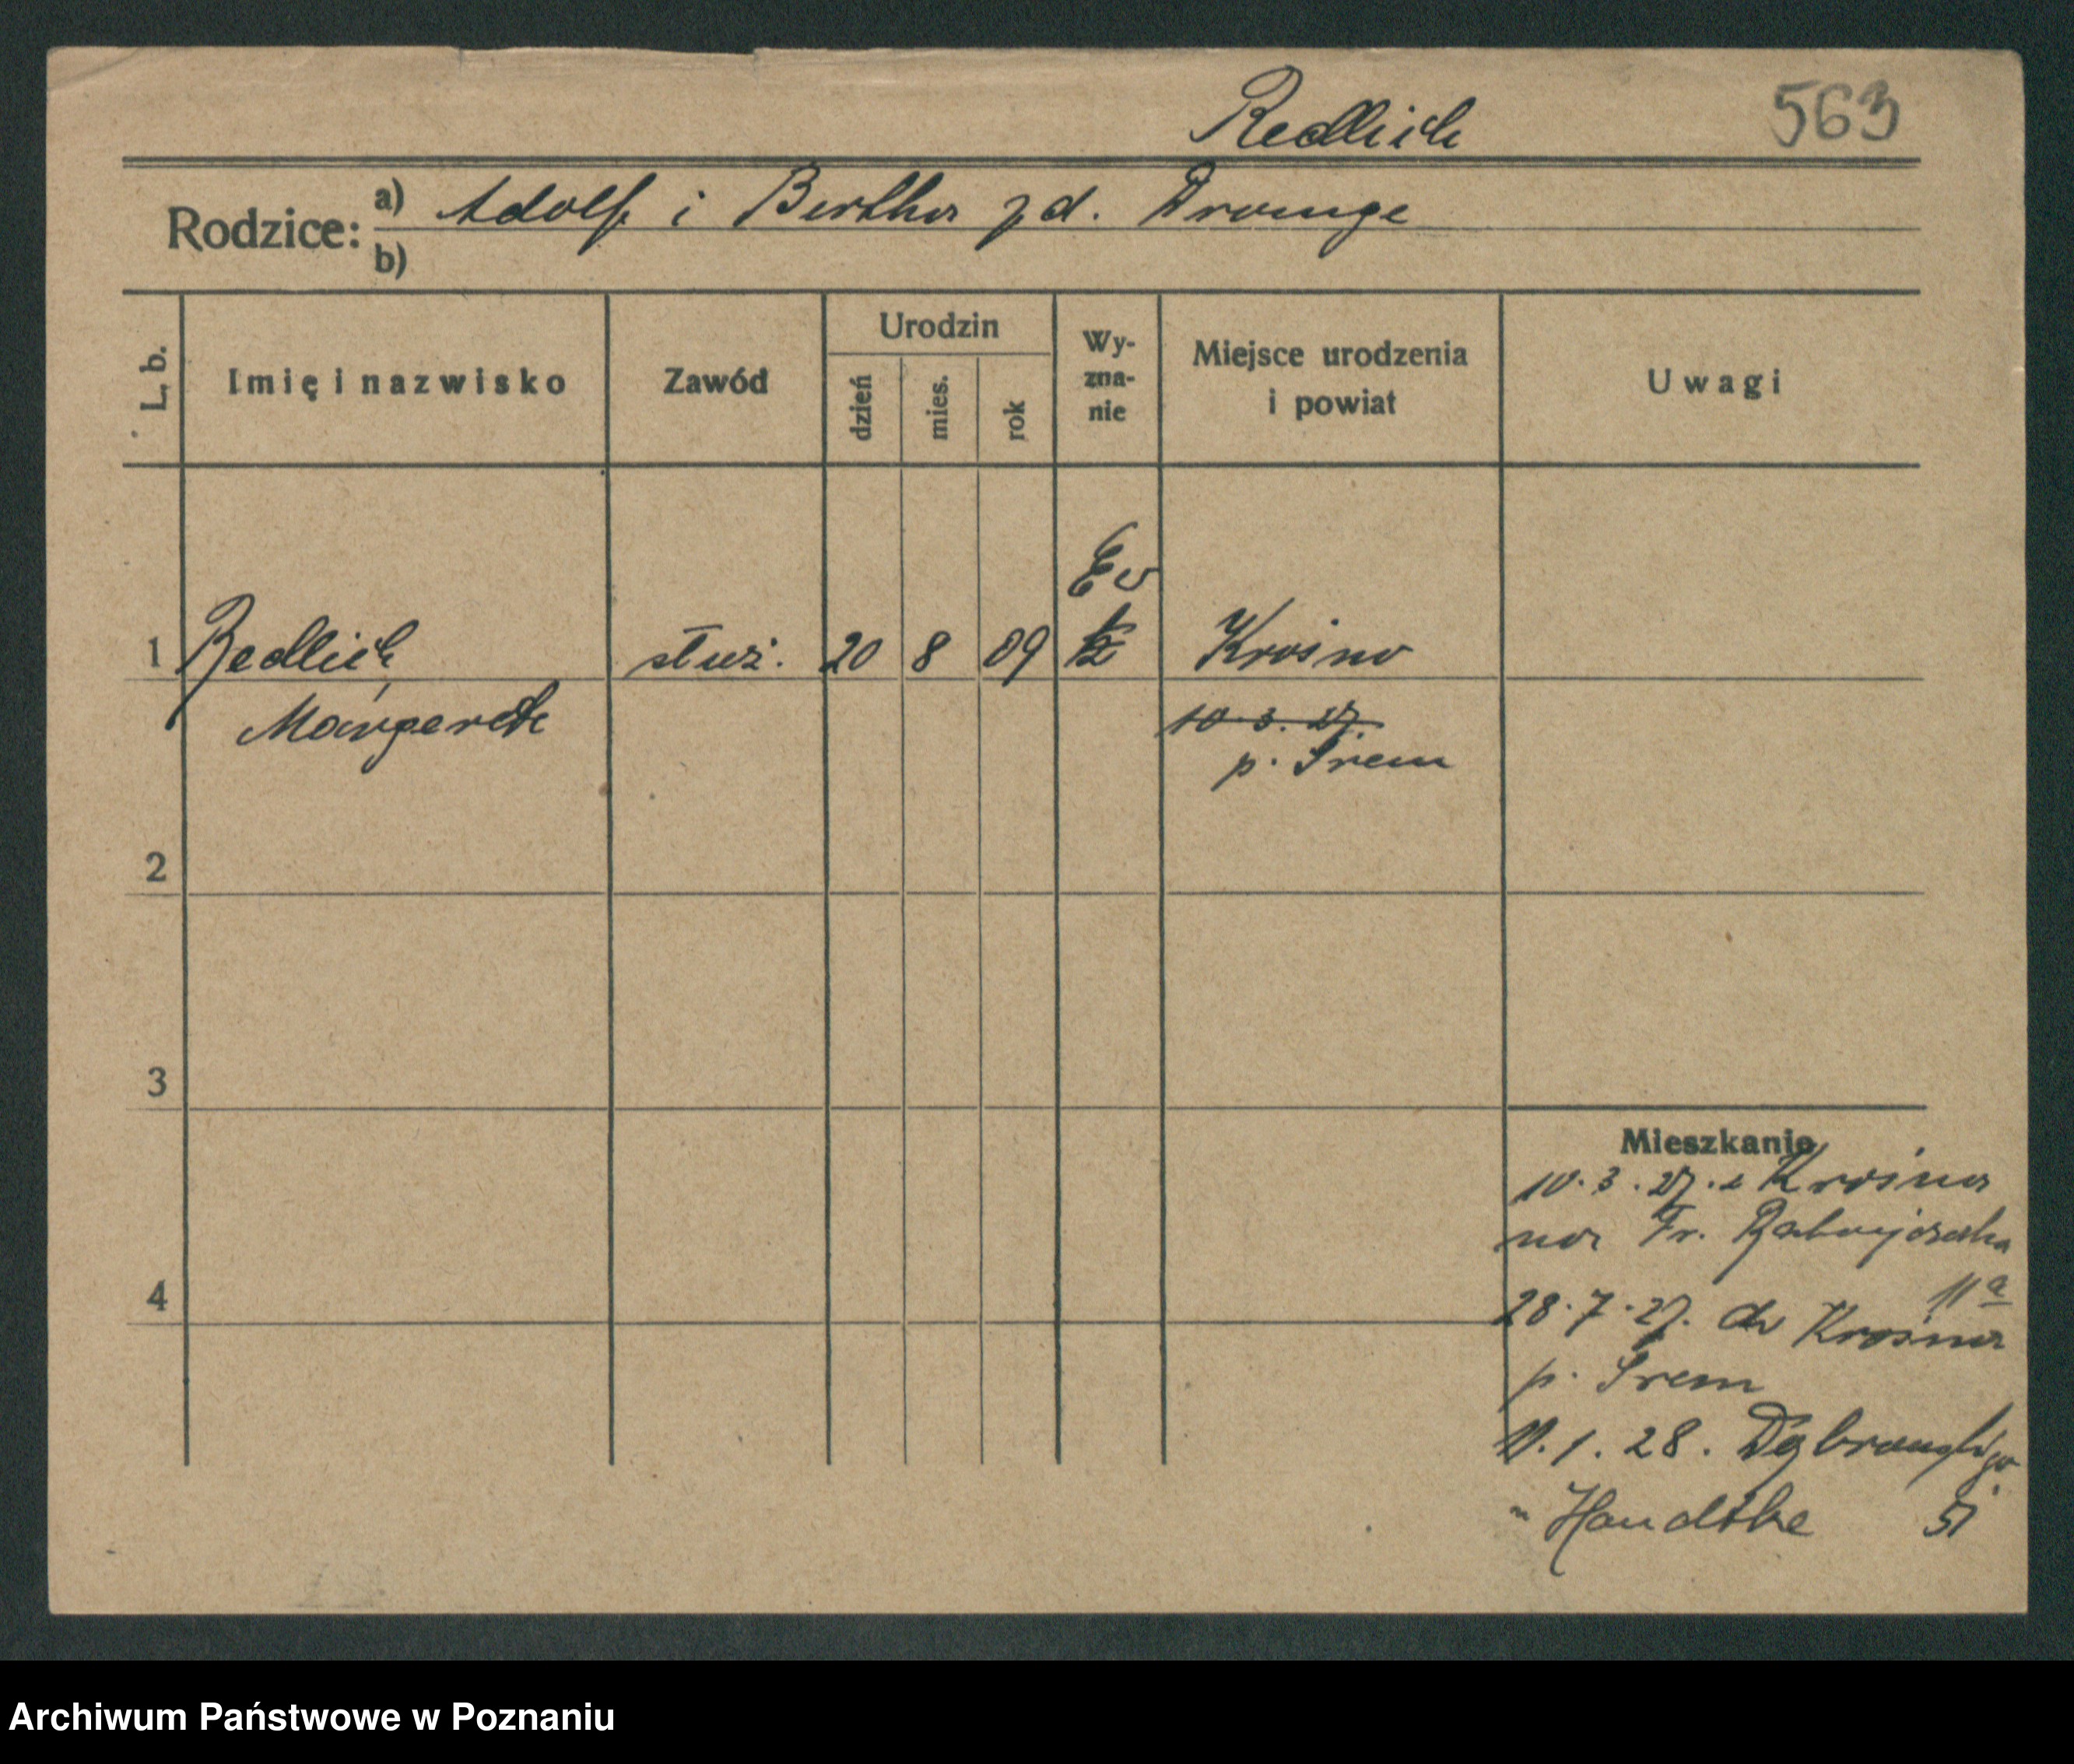 Redlich 563
Rodzice: a) Adolf i Bertha zd. Drom​ge
b)
L. b. Imię i nazwisko Zawód Urodzin dzień mies. rok Wyznanie Miejsce urodzenia i powiat Uwagi
Ev
1 Redlich służ. 20 8 09 Krosno
Margareth 10.3.27.
p. Śrem
2
3
Mieszkanie
10.3.27. z Krosna
na Fr. Ratajczaka
11a
4
28.7.27. do Krosna
p. Śrem
1.28. Dąbrowskiego
Handtke 51
Archiwum Państwowe w Poznaniu